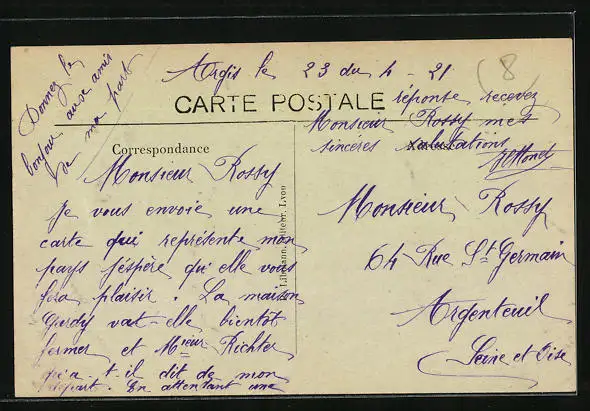 Argis le 23 du 4 - 21
Donnez le
bonjour aux amis
de ma part
CARTE POSTALE
Correspondance
Monsieur Rossy
Je vous envoie une
carte qui représente mon
pays j'éspère qu'elle vous
fera plaisir. La maison
Gurdy vat-elle bientôt
fermer et Mieur Richter
qu'a-t-il dit de mon
départ. En attendant une
réponse recevez
Monsieur Rossy mes
sincéres salutations
Monsieur Rossy
64 Rue St Germain
Argenteuil
Seine et Oise
8